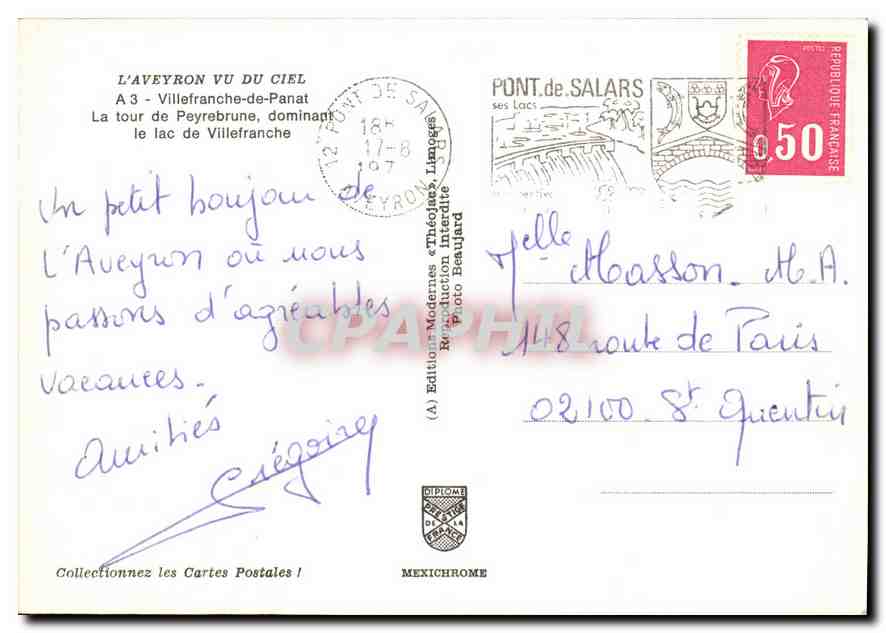 L'AVEYRON VU DU CIEL
A 3 - Villefranche-de-Panat
La tour de Peyrebrune, dominant
le lac de Villefranche
Un petit bonjour de
L'Aveyron où nous
passons d'agréables
vacances.
Amitiés
Grégoire
Collectionnez les Cartes Postales !
(A) Editions Modernes «Théojac», Limoges
Reproduction interdite
Photo Beaujard
DIPLOME
PRESTIGE
DE LA
FRANCE
MEXICHROME
12 PONT DE SALARS
18H
17-8
197
AVEYRON
PONT.de.SALARS
ses Lacs
POSTES
REPUBLIQUE FRANÇAISE
0,50
Melle Masson. M.A.
148 route de Paris
02100. St Quentin
CPAPHIL